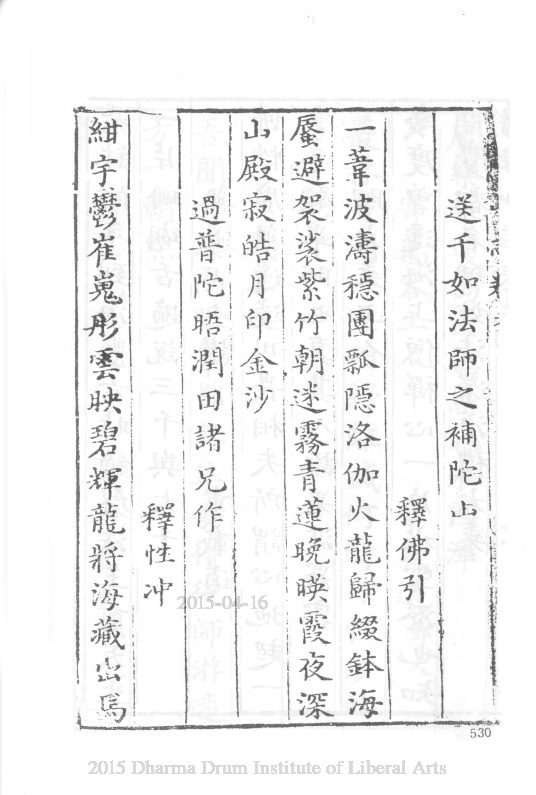 送千如法師之補陀山
釋佛引
一葦波濤穩團瓢隱洛伽火龍歸綴鉢海
蜃避袈裟紫竹朝迷霧青蓮晚暎霞夜深
山殿寂皓月印金沙
過普陀晤潤田諸兄作
釋性冲
紺宇鬱崔嵬彤雲映碧輝龍將海藏出馬
2015-04-16
530
2015 Dharma Drum Institute of Liberal Arts